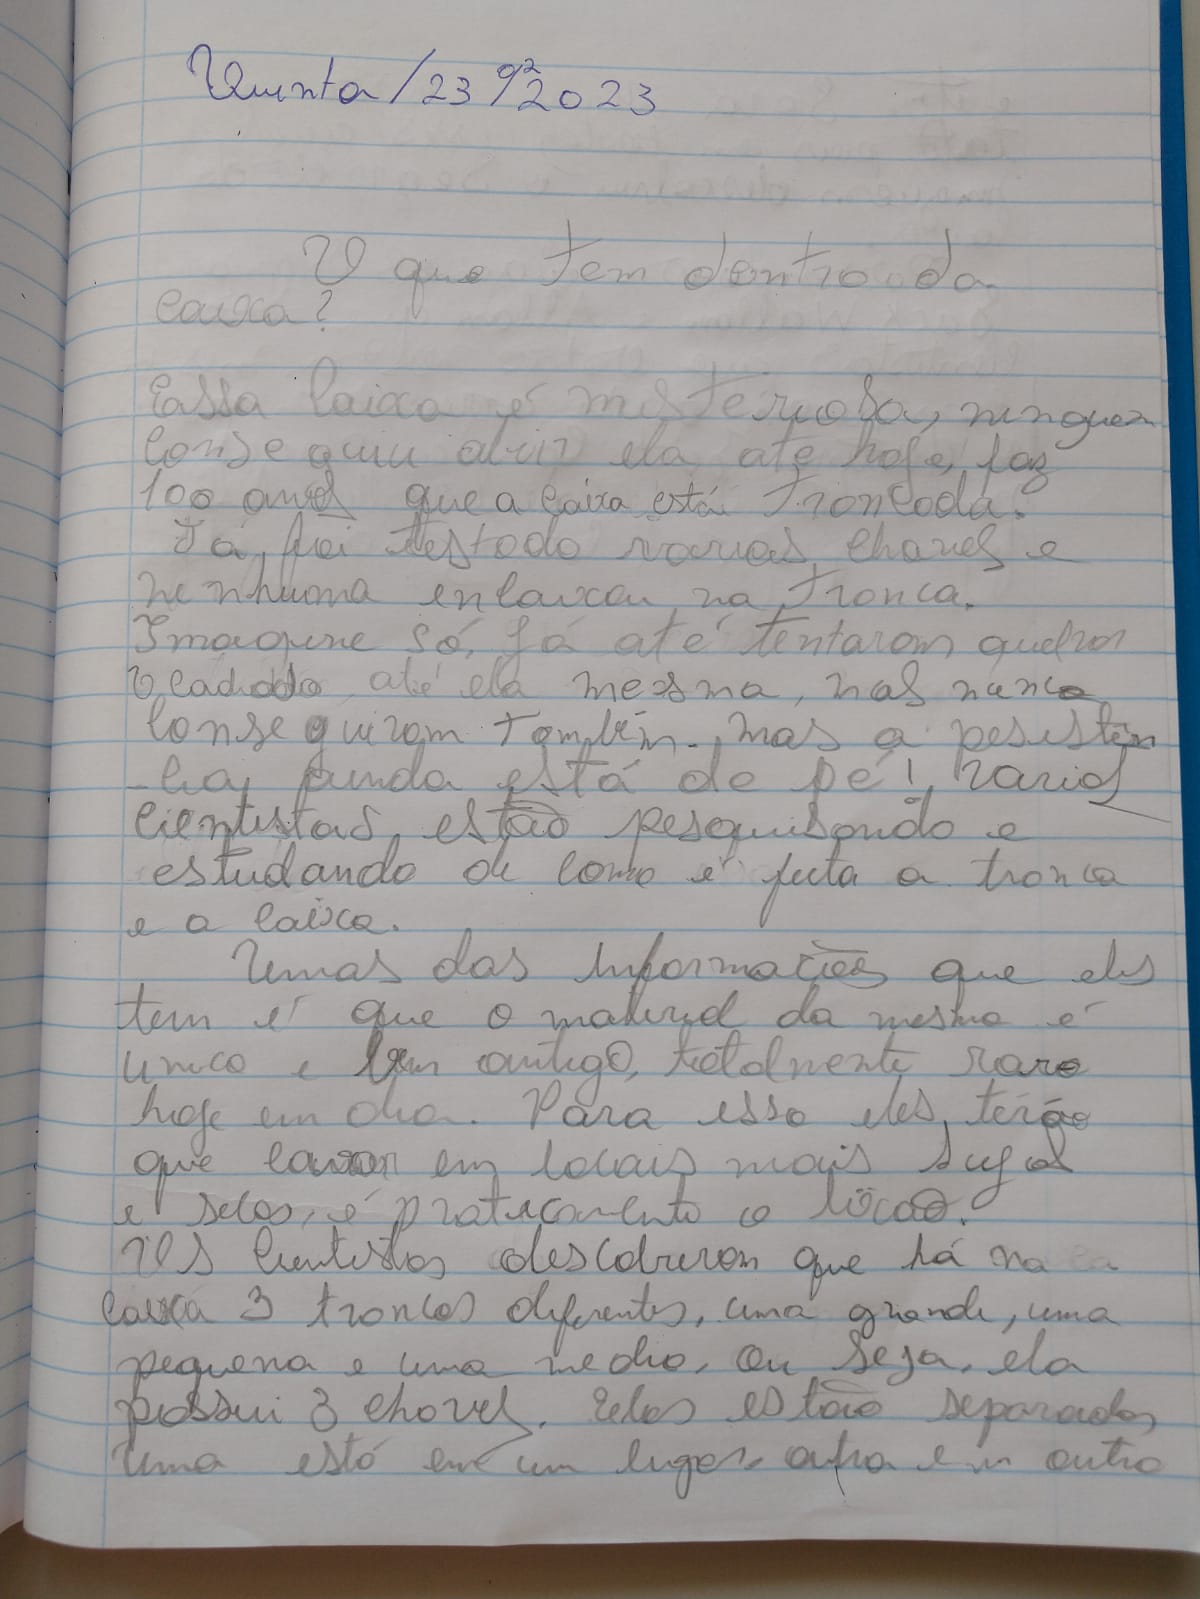 Quinta/23/02/2023
O que tem dentro da
caixa?
Essa caixa é misteriosa, ninguem
conseguiu abrir ela até hoje, faz
100 anos que a caixa está troncada.
Já foi testado varias chaves e
nenhuma encaixou na tronca.
Imagine só, já até tentaram quebrar
o cadeado até ela mesma, mas nunca
conseguiram também, mas a pesistên
-cia, ainda está de pé!, varios
cientistas, estão pesquisando e
estudando de como é feita a tronca
e a caixa.
Umas das informações que eles
tem é que o material da mesma é
unico e bem antigo, totalmente raro
hoje em dia. Para isso eles terão
que cavar em locais mais sujos
e secos, é praticamente o
Os cientistas descobriram que há na
caixa 3 troncas diferentes, uma grande, uma
pequena e uma media, ou seja, ela
possui 3 chaves. Elas estão separadas,
uma está em um lugar, outra em outro